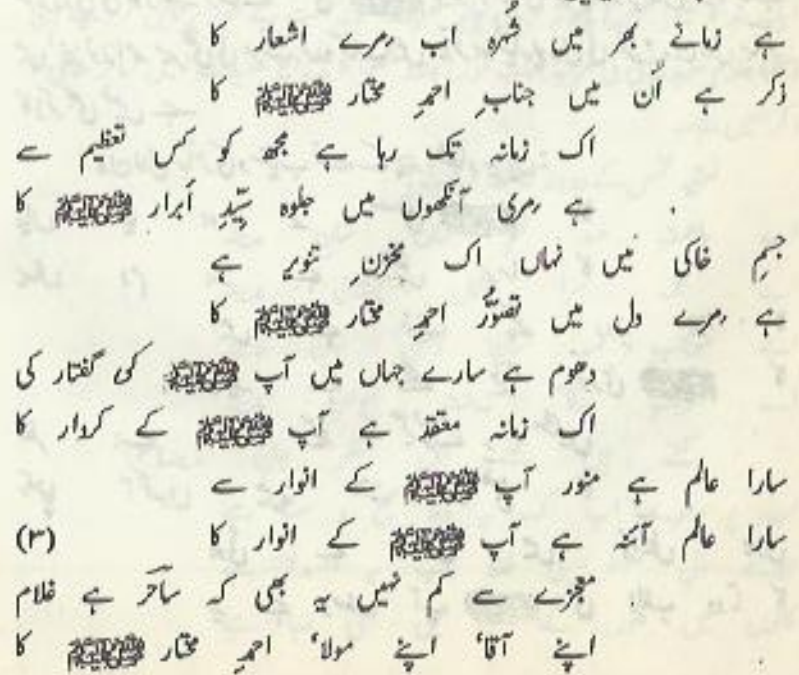 ہے زمانے بھر میں شُہرہ اب مِرے اشعار کا
ذکر ہے اُن میں جنابِ احمدِ مختار ﷺ کا
اک زمانہ تک رہا ہے مجھ کو کس تعظیم سے
ہے مِری آنکھوں میں جلوہ سیّدِ اَبرار ﷺ کا
جسمِ خاکی میں نہاں اک مخزنِ تنویر ہے
ہے مِرے دل میں تصوّر احمدِ مختار ﷺ کا
دھوم ہے سارے جہاں میں آپ ﷺ کی گفتار کی
اک زمانہ معتقد ہے آپ ﷺ کے کردار کا
سارا عالم ہے منور آپ ﷺ کے انوار سے
سارا عالم آئنہ ہے آپ ﷺ کے انوار کا (۳)
معجزے سے کم نہیں یہ بھی کہ ساحؔر ہے غلام
اپنے آقا، اپنے مولا، احمدِ مختار ﷺ کا